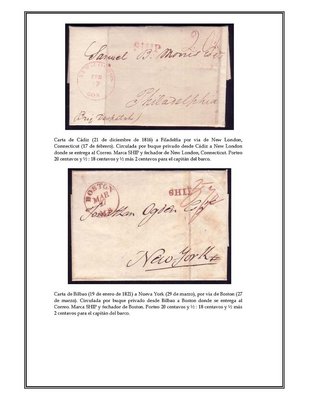 SHIP
Samuel B. Morris Esqr
FEB
CON
Philadelphia
(Brig Vestal)
Carta de Cádiz (21 de diciembre de 1816) a Filadelfia por via de New London,
Connecticut (17 de febrero). Circulada por buque privado desde Cádiz a New London
donde se entrega al Correo. Marca SHIP y fechador de New London, Connecticut. Porteo
20 centavos y ½ : 18 centavos y ½ más 2 centavos para el capitán del barco.
BOSTON
MAR
SHIP
Jonathan Ogden Esqr
New York
Carta de Bilbao (19 de enero de 1821) a Nueva York (29 de marzo), por vía de Boston (27
de marzo). Circulada por buque privado desde Bilbao a Boston donde se entrega al
Correo. Marca SHIP y fechador de Boston. Porteo 20 centavos y ½ : 18 centavos y ½ más
2 centavos para el capitán del barco.